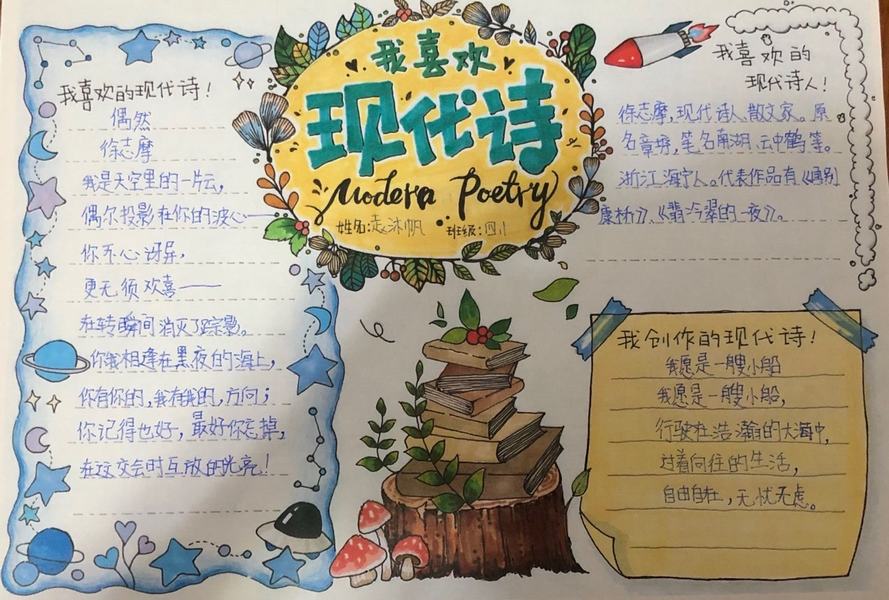 我喜欢
现代诗
Modern Poetry
姓名:赵沐帆 班级:四1
我喜欢的现代诗!
偶然
徐志摩
我是天空里的一片云,
偶尔投影在你的波心——
你不必讶异,
更无须欢喜——
在转瞬间消灭了踪影。
你我相逢在黑夜的海上,
你有你的,我有我的,方向;
你记得也好,最好你忘掉,
在这交会时互放的光亮!
我喜欢的
现代诗人!
徐志摩,现代诗人、散文家。原
名章垿,笔名南湖、云中鹤等。
浙江海宁人。代表作品有《再别
康桥》,《翡冷翠的一夜》。
我创作的现代诗!
我愿是一艘小船
我愿是一艘小船,
行驶在浩瀚的大海中,
过着向往的生活,
自由自在,无忧无虑。